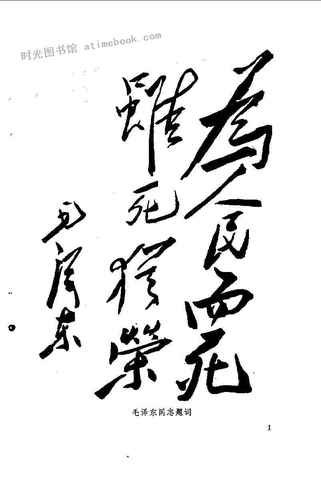 时光图书馆 atimebook.com
為人民而死
雖死猶榮
毛澤东
毛泽东同志题词
1